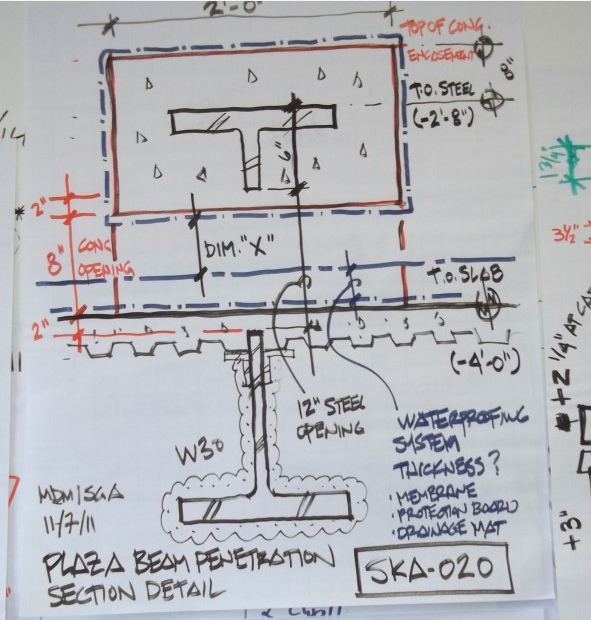 2'-0"
TOP OF CONC.
ENCASEMENT
8"
T.O. STEEL
(-2'-8")
6"
2"
8"
CONC
OPENING
DIM. "X"
T.O. SLAB
2"
(-4'-0")
12" STEEL
OPENING
W30
WATERPROOFING
SYSTEM
THICKNESS?
· MEMBRANE
· PROTECTION BOARD
· DRAINAGE MAT
MDM/SGA
11/7/11
PLAZA BEAM PENETRATION
SECTION DETAIL
SKA-020
1 3/4"
3 1/2"
+2 1/4" AT
+3"